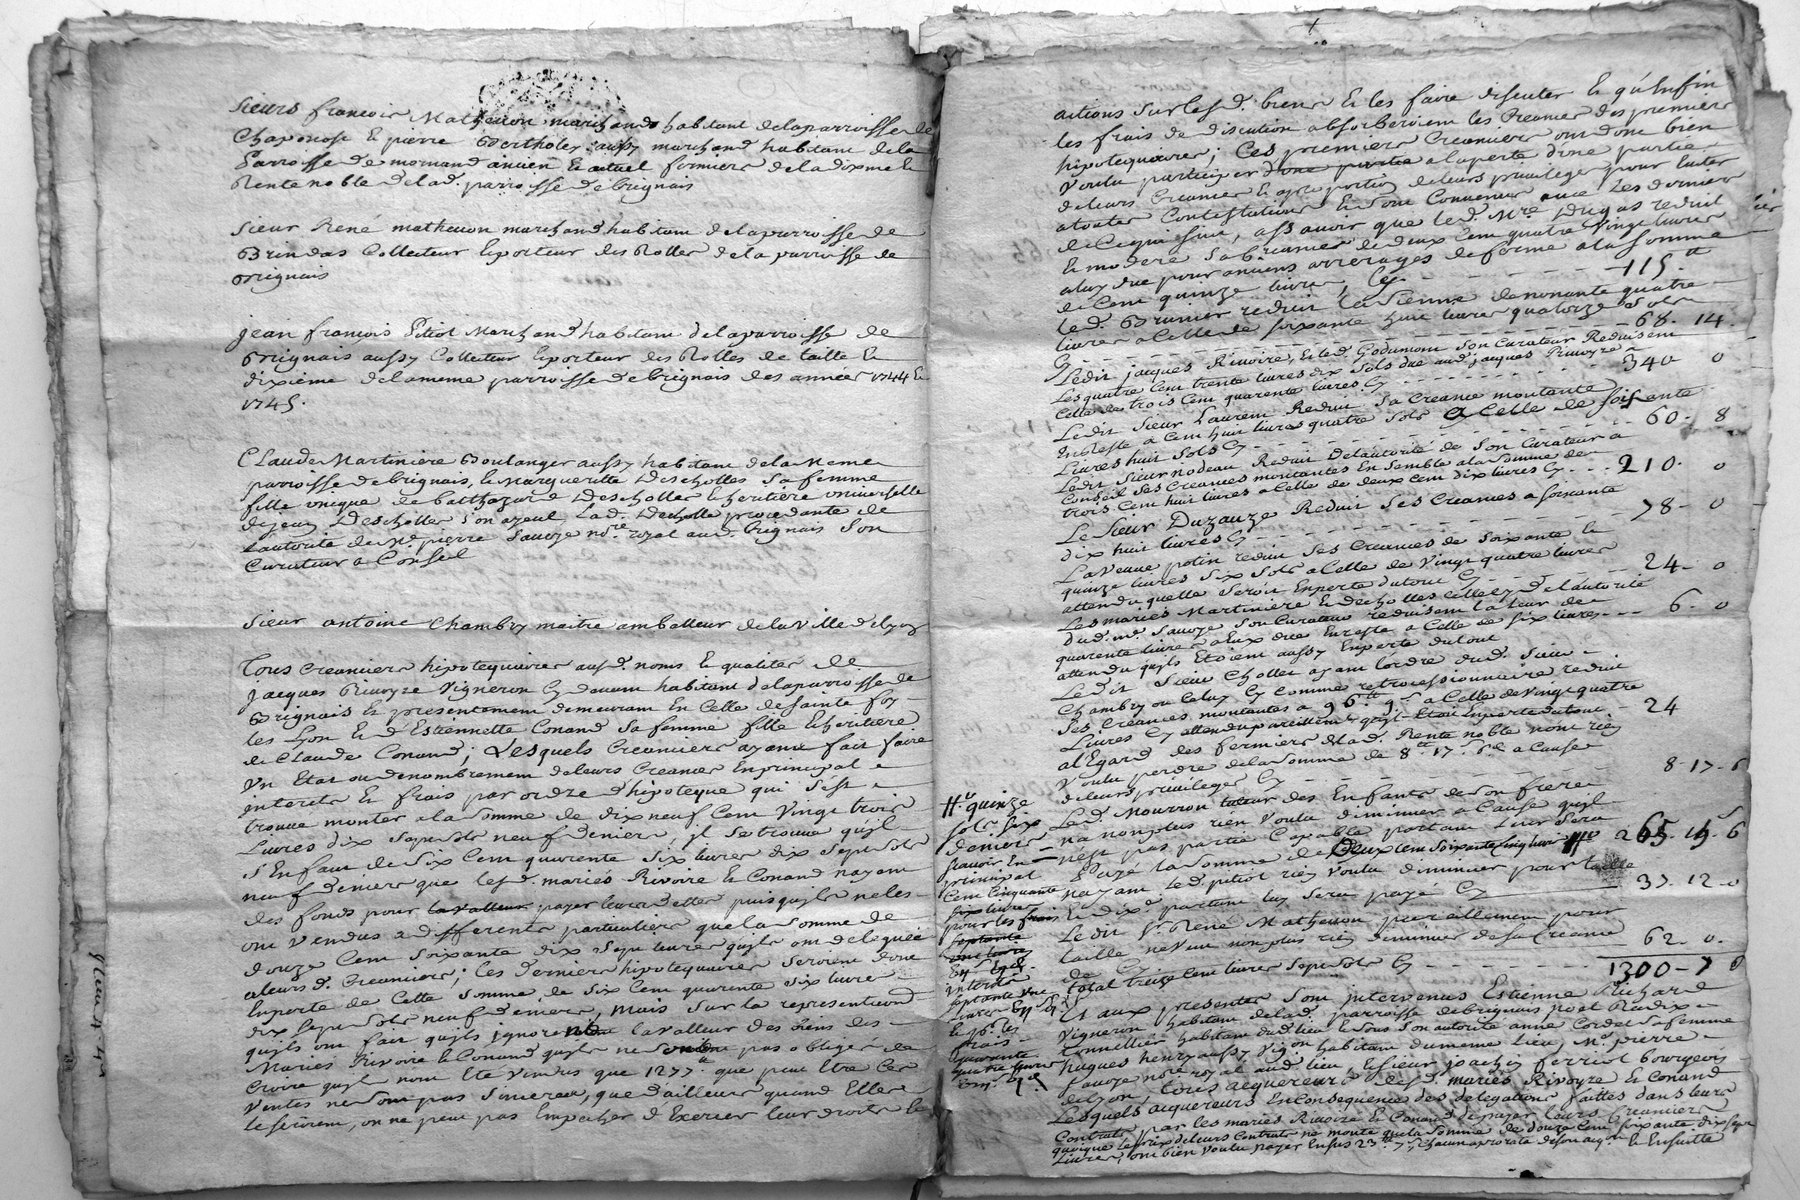 Sieurs francois Matheuon marchands habitant delaparroisse de
Chaponost & pierre Bertholey aussy marchand habitant de la
Parrosse de mornand ancien & actuel fermiers de la dixme &
Rente noble de lad. parroisse de brignais
Sieur René matheuon marchand habitant delaparroisse de
Brindas Collecteur & porteur des Rolles de la parroisse de
brignais
jean francois Pitiot Marchand habitant delaparroisse de
Brignais aussy Collecteur & porteur des Rolles de taille &
dixieme delameme parroisse de brignais des années 1744 &
1745.
Claude Martiniere Boulanger aussy habitant de la Meme
parroisse de brignais, & Margueritte Descholles sa femme
fille unique de balthazard Descholles & heritiere universelle
dejean Descholles son ayeul, Lad. Decholle procedante de
L'autorité de Me. pierre Sauoye nore. royal aud. brignais son
Curateur a Conseil
Sieur antoine Chambry maitre amballeur de la Ville de lyon
Tous Creanciers hipotequaires ausd. noms & qualités de
jacques Riuoyre Vigneron Cy deuant habitant delaparroisse de
Brignais & presentement demeurant En Celle de sainte foy
les Lyon & d'Estiennette Conand sa femme fille & heritiere
de Claude Conand; Lesquels Creanciers ayant fait faire
Un Etat ou denombrement de leurs Creances En principal
interets & frais par ordre d'hipoteque qui s'est
trouué monter a la somme de dix neuf Cent Vingt trois
Livres dix sept sols neuf deniers, jl se trouue qu'jl
s'En faut de six Cent quarente six liures dix sept sols
neuf deniers que lesd. mariés Rivoire & Conand n'ayent
des fonds pour la valleur payer leurs dettes puisqu'jls neles
ont Vendus a differents particuliers que la somme de
douze Cent soixante dix sept liures qu'jls ont deleguée
aleursd. Creanciers; Ces derniers hipotequaires seroient donc
En perte de Cette somme de six Cent quarente six liures
dix sept sols neuf deniers, mais sur la representation
qu'jls ont fait qu'jls ignorent la valleur des biens des
Mariés Rivoire & Conand qu'jls ne sont pas obligés de
Croire qu'jls n'ont Eté Vendus que 1277.tt que peut Etre Ces
Ventes ne sont pas sinceres, que d'ailleurs quand Elles
le seroient, on ne peut pas Empecher d'Exercer leur droits &
actions sur lesd. biens & les faire discuter & qu'Enfin
les frais de discution absorberoient les Creances des premiers
hipotequaires; Ces premiers Creanciers ont donc bien
Voulu participer d'une partie a la perte d'une partie
de leurs Creances & a proportion de leurs privileges pour Euiter
atoutes Contestations & sont Conuenus auec les derniers
de Ce qui suit, assauoir que led. Mre. Dugas reduit
& modere sa Creance de deux Cent quatre Vingt liures
aluy due pour anciens arrerages de ferme a la somme
de Cent quinze liures, Cy 115.tt
led. Brunier reduit la sienne de nonante quatre
liures a Celle de soixante huit liures quatorze sols
Cy 68. 14.
Ledit jacques Riuoire, & led. Godumont son Curateur Reduisent
Les quatre Cent trente liures dix sols due aud. jacques Riuoyre a
Celle de trois Cent quarente liures Cy 340 0
Ledit sieur Laurent Reduit sa Creance montante
En Reste a Cent huit liures quatre sols a Celle de soixante
Liures huit sols Cy 60. 8
Ledit sieur nodeau Reduit Delautorité de son Curateur a
Conseil ses Creances montantes Ensemble ala somme de
trois Cent huit liures a Celle de deux Cent dix liures Cy 210. 0
Le sieur Duzauze Reduit ses Creances a soixante
dix huit liures Cy 78. 0
La Veuue potin reduit ses Creances de soixante &
quinze liures six sols a Celle de Vingt quatre liures
attendu quelle seroit En perte du tout Cy 24. 0
Les mariés Martiniere & Decholles Celle cy de l'autorité
dud. me. Sauoye son Curateur reduisent la leur de
quarente liures a Eux due En reste a Celle de six liures 6. 0
attendu qu'jls Etoient aussy En perte du tout
Ledit Sieur Chollet ayant l'ordre dud. Sieur
Chambry ou Celuy Cy Comme retrocessionnaire reduit
ses Creances montantes a 96.tt 9.s a Celle de Vingt quatre
Liures Cy attendu pareillement qu'jl Etoit En perte du tout 24
al'Egard des fermiers de lad. Rente noble n'ont rien
Voulu perdre de la somme de 8.tt 17.s 6.d a Cause
de leurs privileges Cy 8. 17. 6
Led. Mourron tuteur des Enfants de son frere
na nonplus rien Voulu diminuer a Cause qu'jl
n'est pas partie Capable partant Leur sera
Payé la somme de Deux Cent soixante Cinq liures # 265. 15. 6
N'ayant led. pitiot rien Voulu diminuer pour taille
& dixe. partant luy sera payé Cy 37. 12. 0
Ledit sr. René Matheuon pareillement pour
taille ne Veut nonplus rien diminuer de sa Creance
de Cy 62. 0.
total treize Cent liures sept sols Cy 1300. 7 0
#. quinze
sols six
deniers
scauoir En
principal
Cent Cinquante
six liures
pour les frais
septante
interets
septante une
liures
frais
quarente
quatre
Et aux presentes sont intervenus Estienne Richard
Vigneron habitant de lad. parroisse de brignais
tonnellier habitant dud. lieu & sous son autorité anne Cordet sa femme
hugues henry aussy Vig.on habitant du meme lieu, Me. pierre
Sauoye nore. royal aud. lieu, & sieur joachin ferriol bourgeois
de lyon, tous acquereurs desd. mariés Rivoyre & Conand
Lesquels acquereurs En Consequence des delegations faittes dans leurs
Contrats par les mariés Riuoire & Conand de payer leurs Creanciers
quoique le prix de leurs Contrats ne monte que la somme de douze Cent soixante dix sept
Liures, ont bien Voulu payer En sus 23.tt 7.s chacun au prorata de son acqon. & Ensuitte